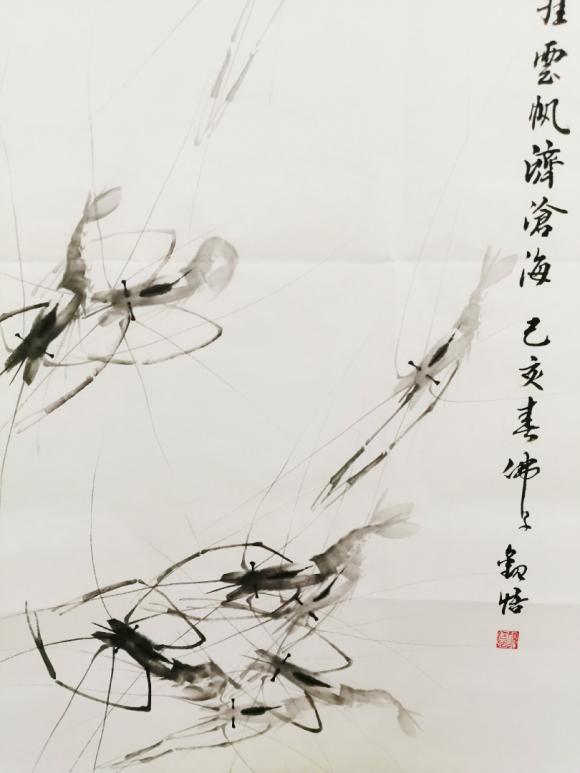 挂雲帆濟滄海 己亥春佛子觀悟